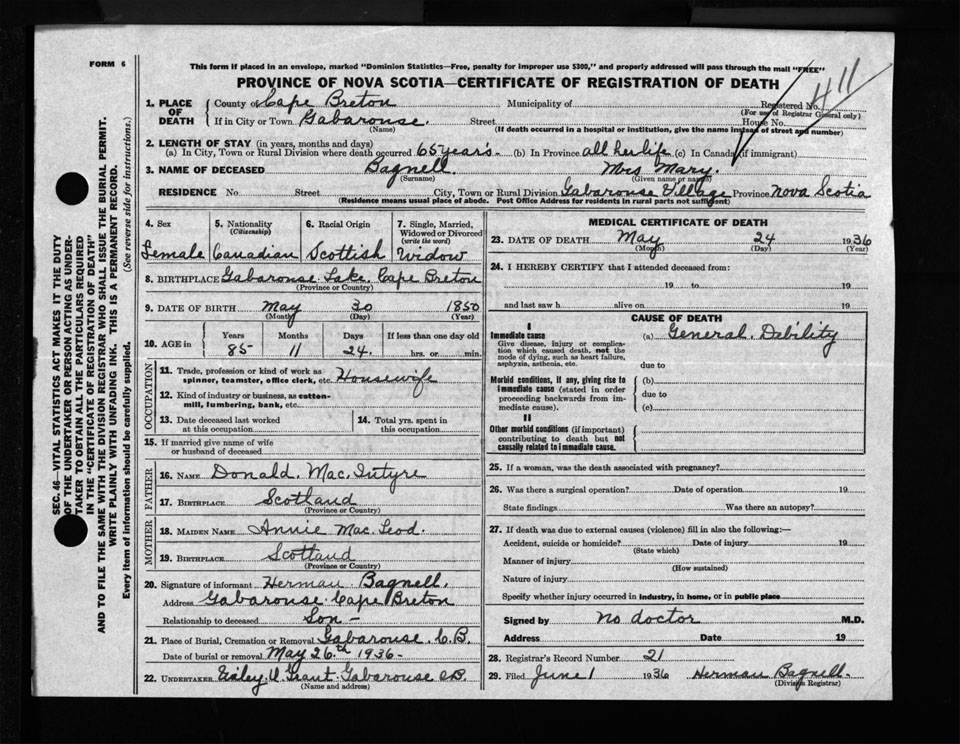 FORM 6
This form if placed in an envelope, marked "Dominion Statistics—Free, penalty for improper use $300," and properly addressed will pass through the mail "FREE"
PROVINCE OF NOVA SCOTIA—CERTIFICATE OF REGISTRATION OF DEATH
411
1. PLACE OF DEATH
County of Cape Breton Municipality of Registered No.
(For use of Registrar General only)
If in City or Town Gabarouse. Street House No.
(Name) (If death occurred in a hospital or institution, give the name instead of street and number)
2. LENGTH OF STAY (in years, months and days)
(a) In City, Town or Rural Division where death occurred 65 year's (b) In Province all her life (c) In Canada (if immigrant)
3. NAME OF DECEASED Bagnell. Mrs Mary.
(Surname) (Given name or names)
RESIDENCE No. Street City, Town or Rural Division Gabarouse Village Province Nova Scotia
(Residence means usual place of abode. Post Office Address for residents in rural parts not sufficient)
4. Sex
Female
5. Nationality
(Citizenship)
Canadian
6. Racial Origin
Scottish
7. Single, Married, Widowed or Divorced
(write the word)
Widow
8. BIRTHPLACE Gabarouse Lake. Cape Breton
(Province or Country)
9. DATE OF BIRTH May 30 1850
(Month) (Day) (Year)
10. AGE in
Years Months Days If less than one day old
85 11 24. hrs. or min.
OCCUPATION
11. Trade, profession or kind of work as spinner, teamster, office clerk, etc. Housewife
12. Kind of industry or business, as cotton-mill, lumbering, bank, etc.
13. Date deceased last worked at this occupation
14. Total yrs. spent in this occupation
15. If married give name of wife or husband of deceased
FATHER
16. NAME Donald. Mac. Intyre
17. BIRTHPLACE Scotland
(Province or Country)
MOTHER
18. MAIDEN NAME Annie Mac. Leod.
19. BIRTHPLACE Scotland
(Province or Country)
20. Signature of informant Herman Bagnell.
Address Gabarouse Cape Breton
Relationship to deceased Son -
21. Place of Burial, Cremation or Removal Gabarouse. C.B.
Date of burial or removal May 26th 1936-
22. UNDERTAKER Grant. Gabarouse C.B.
(Name and address)
MEDICAL CERTIFICATE OF DEATH
23. DATE OF DEATH May 24 1936
(Month) (Day) (Year)
24. I HEREBY CERTIFY that I attended deceased from:
19 to 19
and last saw h alive on 19
CAUSE OF DEATH
I
Immediate cause
Give disease, injury or complication which caused death, not the mode of dying, such as heart failure, asphyxia, asthenia, etc.
(a) General. Debility
due to
Morbid conditions, if any, giving rise to immediate cause (stated in order proceeding backwards from immediate cause).
(b)
due to
(c)
II
Other morbid conditions (if important) contributing to death but not causally related to immediate cause.
25. If a woman, was the death associated with pregnancy?
26. Was there a surgical operation? Date of operation 19
State findings Was there an autopsy?
27. If death was due to external causes (violence) fill in also the following:—
Accident, suicide or homicide? Date of injury 19
(State which)
Manner of injury
(How sustained)
Nature of injury
Specify whether injury occurred in industry, in home, or in public place
Signed by no doctor M.D.
Address Date 19
28. Registrar's Record Number 21
29. Filed June 1 1936 Herman Bagnell.
(Division Registrar)
SEC. 46—VITAL STATISTICS ACT MAKES IT THE DUTY
OF THE UNDERTAKER OR PERSON ACTING AS UNDER-
TAKER TO OBTAIN ALL THE PARTICULARS REQUIRED
IN THE "CERTIFICATE OF REGISTRATION OF DEATH"
AND TO FILE THE SAME WITH THE DIVISION REGISTRAR WHO SHALL ISSUE THE BURIAL PERMIT.
WRITE PLAINLY WITH UNFADING INK. THIS IS A PERMANENT RECORD.
Every item of information should be carefully supplied. (See reverse side for instructions.)